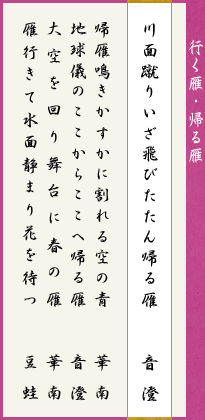 行く雁・帰る雁
川面蹴りいざ飛びたたん帰る雁　音澄
帰雁鳴きかすかに割れる空の青　華南
地球儀のここからここへ帰る雁　音澄
大空を回り舞台に春の雁　華南
雁行きて水面静まり花を待つ　豆蛙